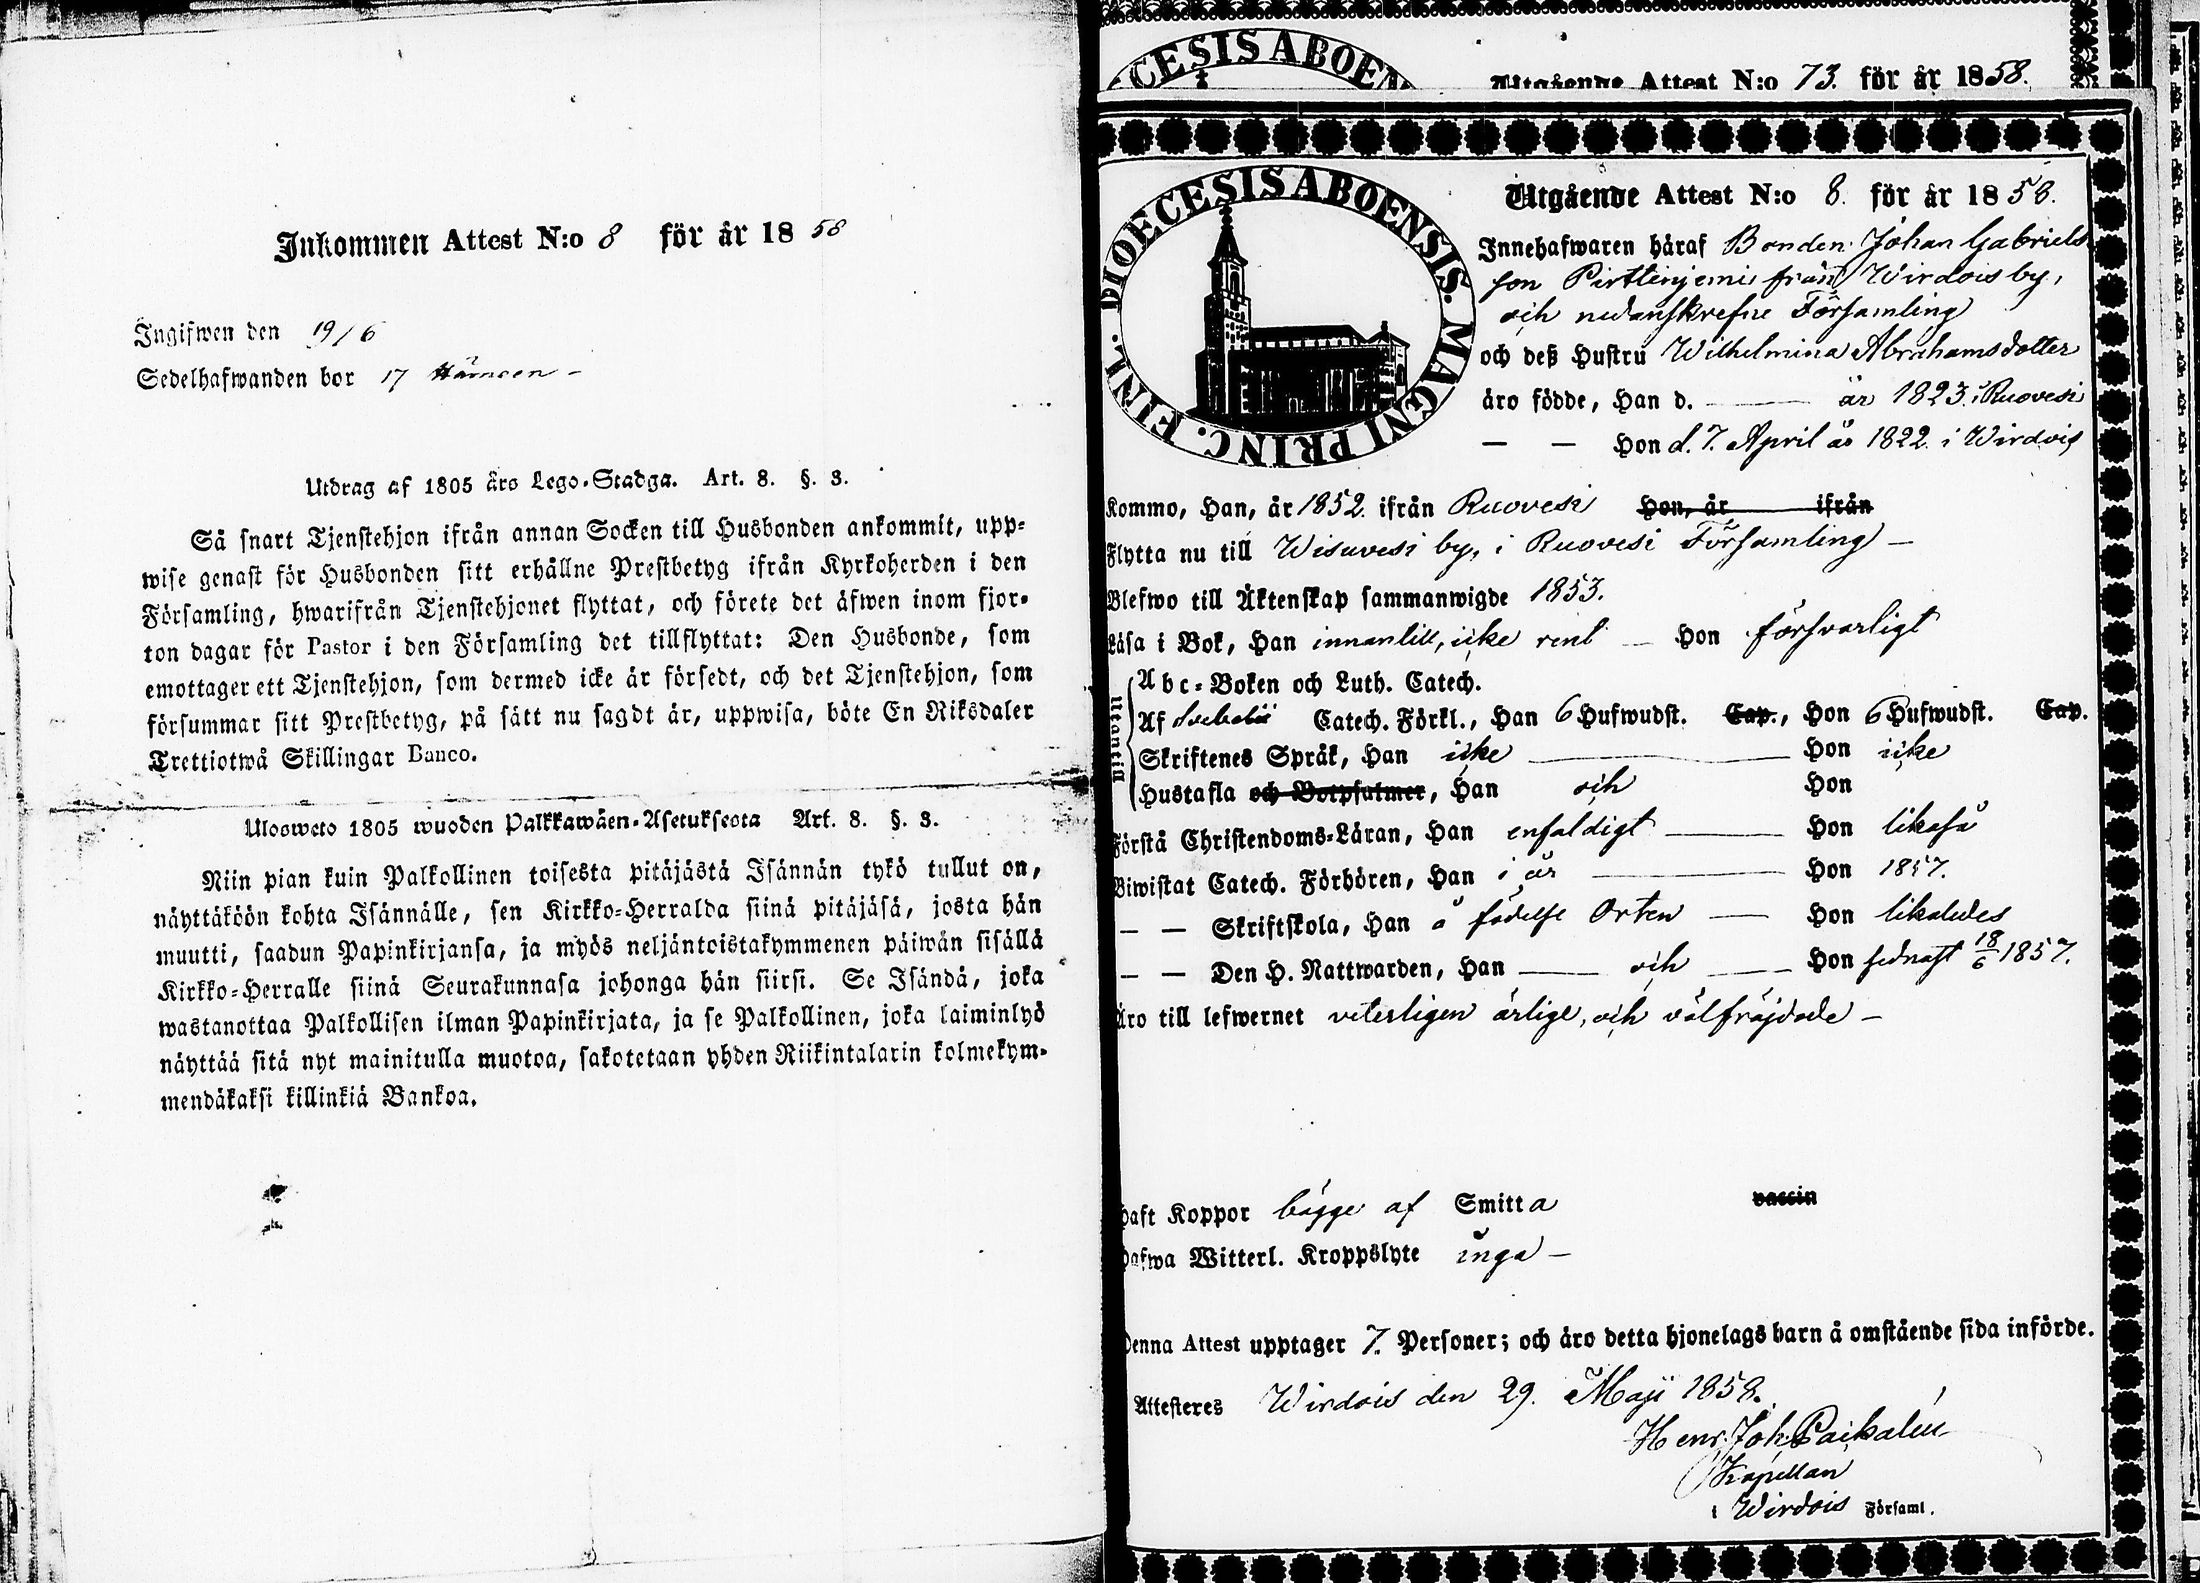 Inkommen Attest N:o 8 för år 1858
Ingifwen den 19/6
Sedelhafwanden bor 17
Utdrag af 1805 års Lego-Stadga. Art. 8. §. 3.
Så snart Tjenstehjon ifrån annan Socken till Husbonden ankommit, upp-
wise genast för Husbonden sitt erhållne Prestbetyg ifrån Kyrkoherden i den
Församling, hwarifrån Tjenstehjonet flyttat, och förete det äfwen inom fjor-
ton dagar för Pastor i den Församling det tillflyttat: Den Husbonde, som
emottager ett Tjenstehjon, som dermed icke är försedt, och det Tjenstehjon, som
försummar sitt Prestbetyg, på sätt nu sagdt är, uppwisa, böte En Riksdaler
Trettiotwå Skillingar Banco.
Ulosweto 1805 wuoden Palkkawäen-Asetuksesta Art. 8. §. 3.
Niin pian kuin Palkollinen toisesta pitäjästä Isännän tykö tullut on,
näyttäköön kohta Isännälle, sen Kirkko-Herralda siinä pitäjäsä, josta hän
muutti, saadun Papinkirjansa, ja myös neljäntoistakymmenen päiwän sisällä
Kirkko-Herralle siinä Seurakunnasa johonga hän siirsi. Se Isändä, joka
wastanottaa Palkollisen ilman Papinkirjata, ja se Palkollinen, joka laiminlyö
näyttää sitä nyt mainitulla muotoa, sakotetaan yhden Riikintalarin kolmekym-
mendäkaksi killinkiä Bankoa.
CESIS ABOEN
Utgående Attest N:o 73. för år 1858.
DIOECESIS ABOENSIS. MAGNI PRINC. FINL.
Utgående Attest N:o 8. för år 1858.
Innehafwaren häraf Bonden Johan Gabriels
son Pirttinjemi från Wirdois by,
och nedanskrefne Församling
och deß Hustru Wilhelmina Abrahamsdotter
äro födde, Han d. — år 1823. i Ruovesi
— — Hon d. 7. April år 1822. i Wirdois
Kommo, Han, år 1852. ifrån Ruovesi Hon, år ifrån
Flytta nu till Wisuvesi by, i Ruovesi Församling —
Blefwo till Äktenskap sammanwigde 1853.
Läsa i Bok, Han innantill, icke rent — Hon försvarligt
Utantill
Abc-Boken och Luth. Catech.
Af Svebelii Catech. Förkl., Han 6 Hufwudst. Cap., Hon 6 Hufwudst. Cap.
Skriftenes Språk, Han icke — Hon icke
Hustafla och Botpsalmer, Han och Hon
Förstå Christendoms-Läran, Han enfaldigt — Hon likaså
Biwistat Catech. Förhören, Han i år — Hon 1857.
— — Skriftskola, Han å födelse Orten — Hon likaledes
— — Den H. Nattwarden, Han — och — Hon sednast 18/6 1857.
Äro till lefwernet veterligen ärlige, och välfräjdade —
Haft Koppor bägge af Smitta vaccin
Hafwa Witterl. Kroppslyte inga —
Denna Attest upptager 7. Personer; och äro detta hjonelags barn å omstående sida införde.
Attesteres Wirdois den 29. Maji 1858.
Henr. Joh. Paikalén
Kapellan
i Wirdois Församl.